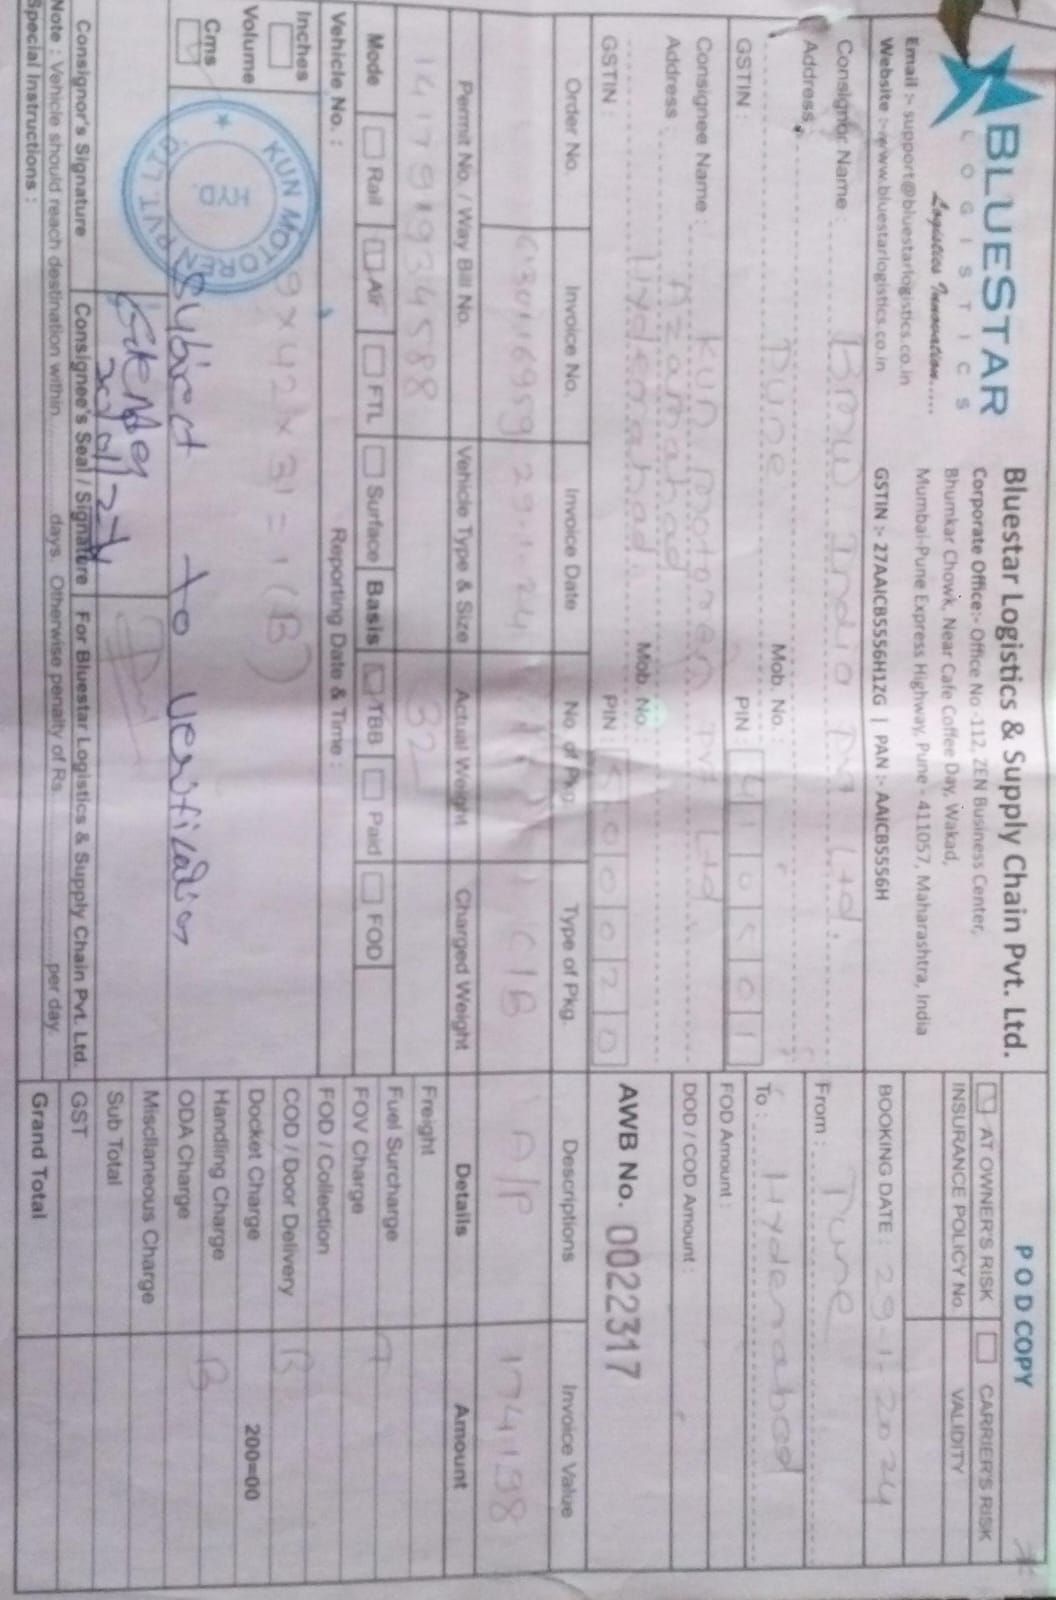 BLUESTAR
LOGISTICS
Logistics Innovation.....
Email :- support@bluestarlogistics.co.in
Website :- www.bluestarlogistics.co.in
Bluestar Logistics & Supply Chain Pvt. Ltd.
Corporate Office:- Office No -112, ZEN Business Center,
Bhumkar Chowk, Near Cafe Coffee Day, Wakad,
Mumbai-Pune Express Highway, Pune - 411057, Maharashtra, India
GSTIN :- 27AAICB5556H1ZG | PAN :- AAICB5556H
POD COPY
AT OWNER'S RISK CARRIER'S RISK
INSURANCE POLICY No. VALIDITY
BOOKING DATE : 29-1-2024
Consignor Name : BMW India Pvt Ltd.
Address :
Pune Mob. No. :
GSTIN : PIN : 410501
From : Pune
To : Hyderabad
Consignee Name : KUN motoren Pvt Ltd
Address : Azamabad
Hyderabad. Mob. No. :
GSTIN : PIN : 500020
FOD Amount :
DOD / COD Amount :
AWB No. 0022317
Order No. Invoice No. Invoice Date No. of Pkg. Type of Pkg. Descriptions Invoice Value
29-1-24 C/B A/P 174198
Permit No. / Way Bill No. Vehicle Type & Size Actual Weight Charged Weight Details Amount
32
Mode Rail Air FTL Surface Basis TBB Paid FOD
Vehicle No. : Reporting Date & Time :
Inches
Volume
Cms
9 x 42 x 31 = 1 (B)
KUN MOTOREN PVT. LTD.
HYD.
Subject to verification
Consignor's Signature Consignee's Seal / Signature For Bluestar Logistics & Supply Chain Pvt. Ltd.
Note : Vehicle should reach destination within..................days. Otherwise penalty of Rs...............................per day.
Special Instructions :
Freight
Fuel Surcharge
FOV Charge
FOD / Collection
COD / Door Delivery
Docket Charge 200=00
Handling Charge
ODA Charge
Miscllaneous Charge
Sub Total
GST
Grand Total
T
B
B